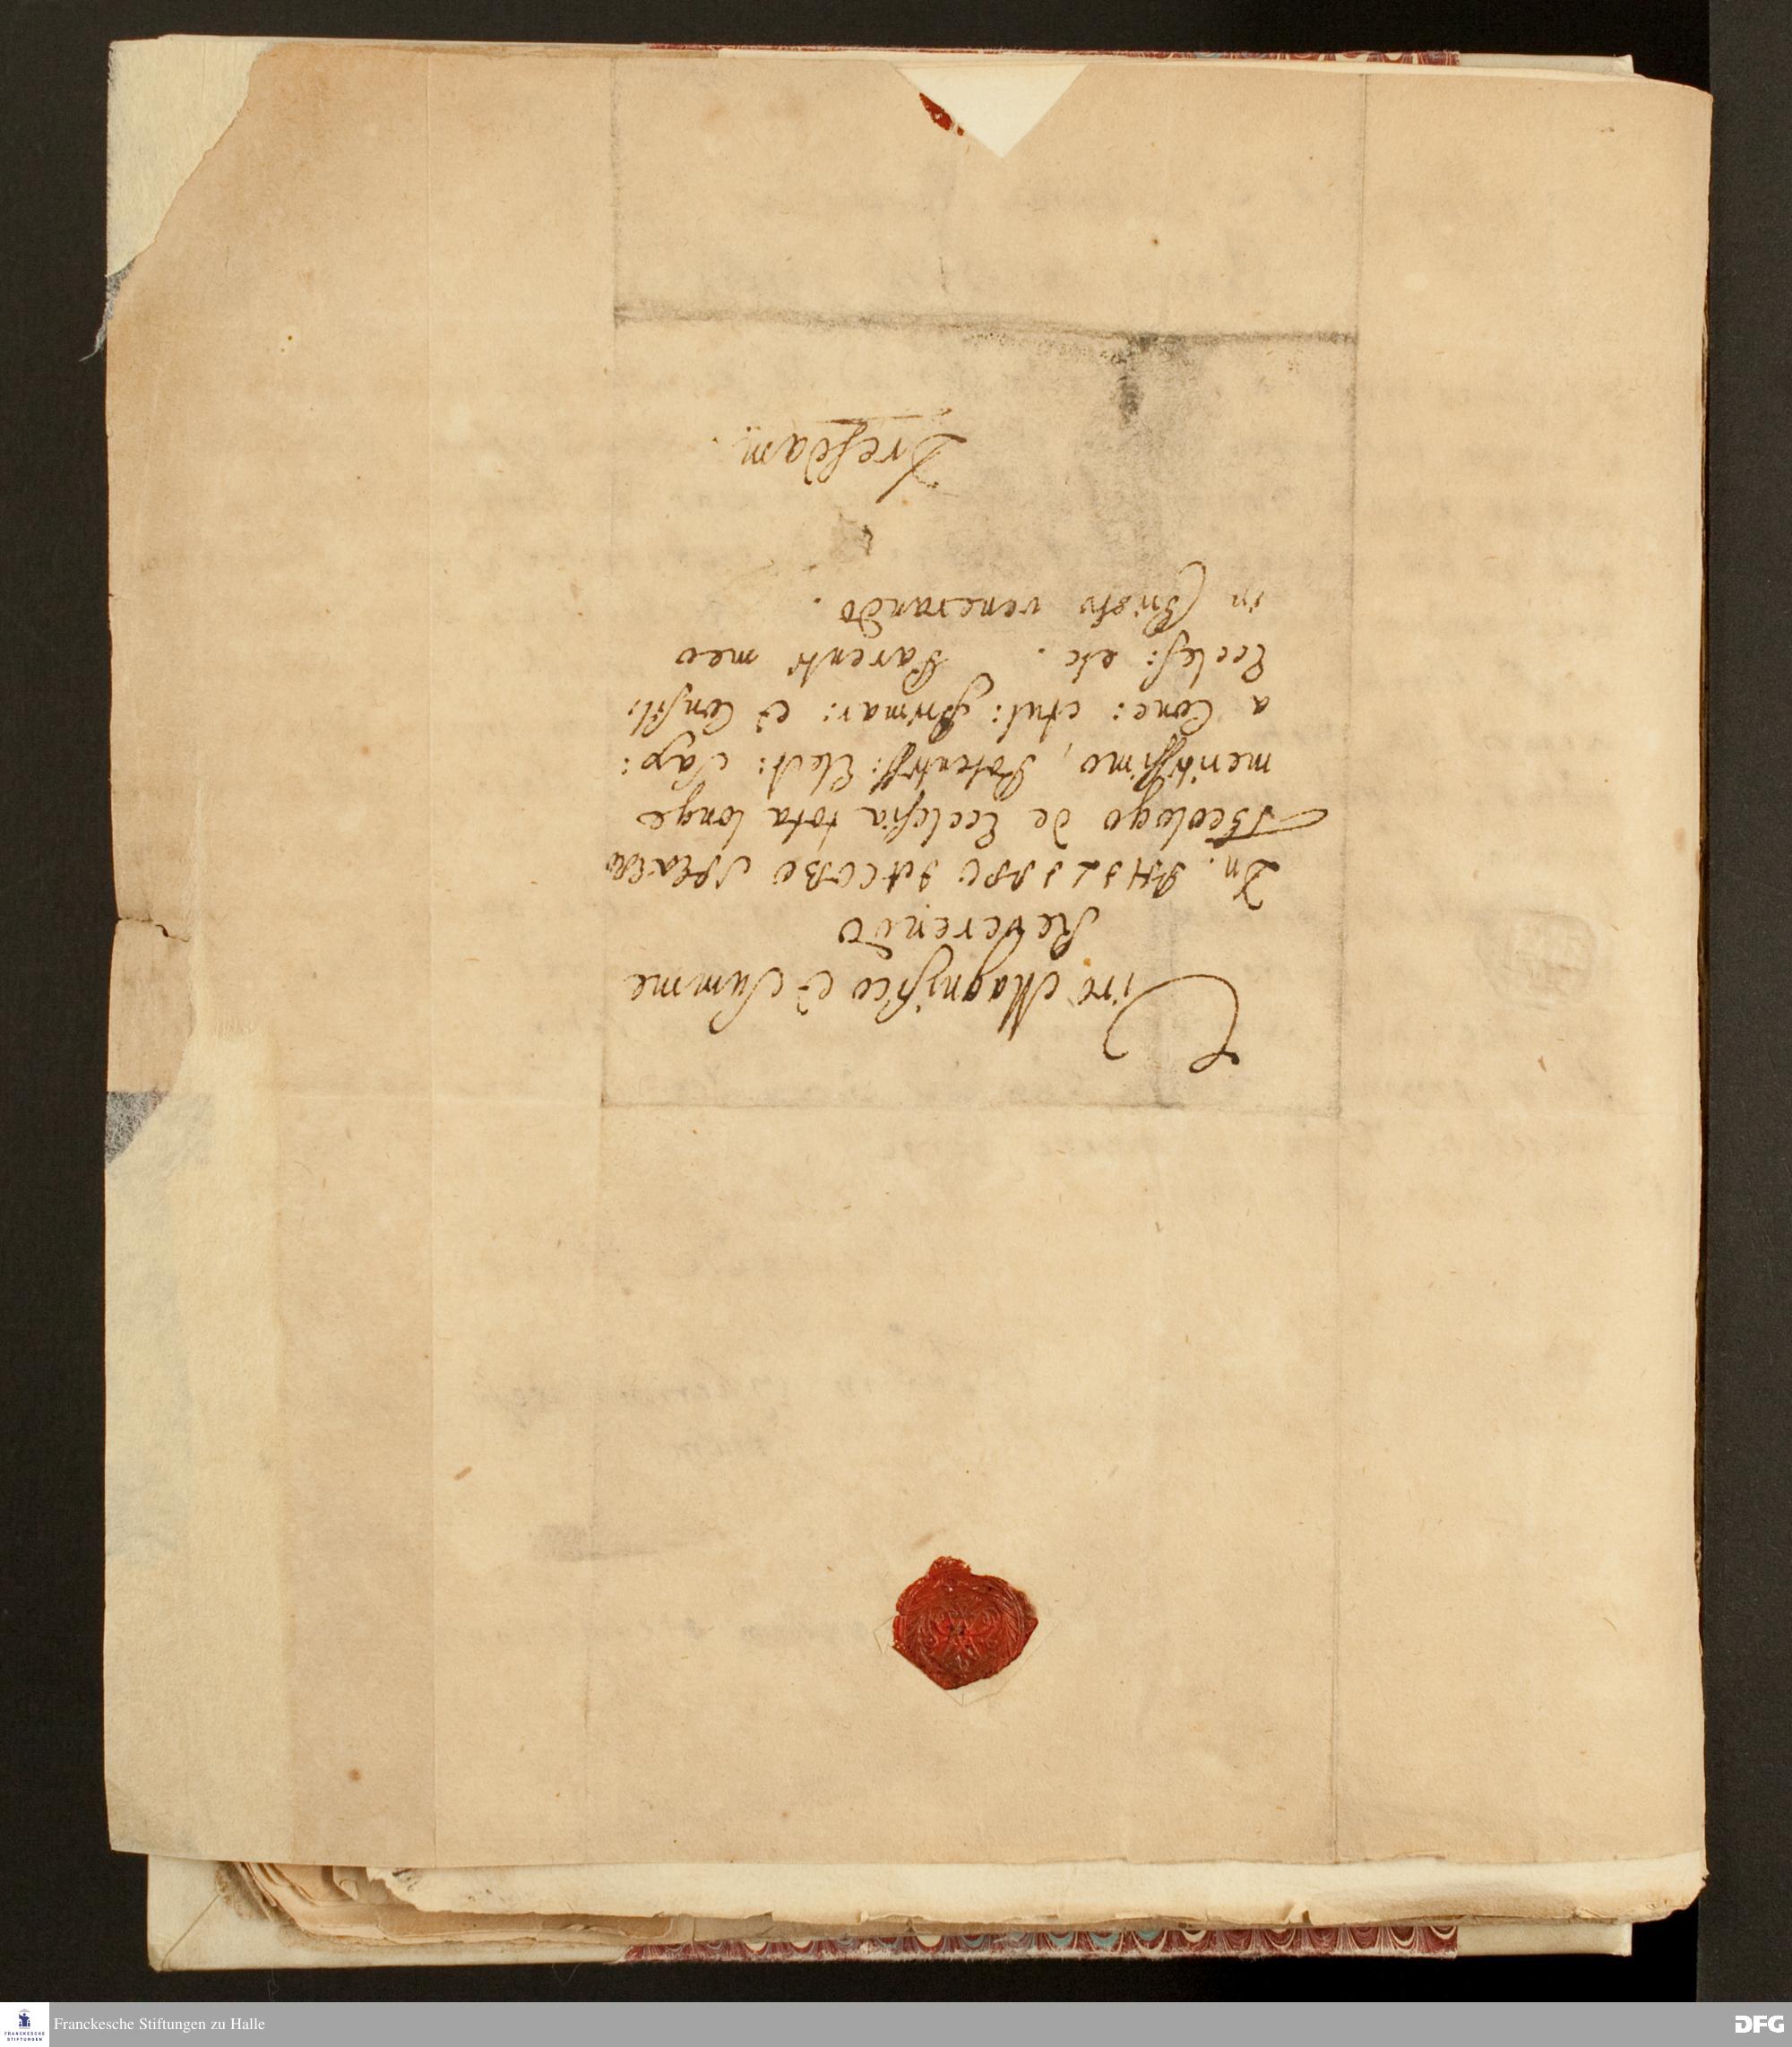 Viro Magnifico & Summe
Reverendo
Dn. PHILIPPO JACOBO
Theologo de Ecclesia tota longe
meritissimo, Potentiss: Elect: Sax:
a Conc: Aul: Primar: & Consil:
Eccles: etc. Parenti meo
in Christo venerando.
Dresdam.
Franckesche Stiftungen zu Halle
FRANCKESCHE STIFTUNGEN
DFG